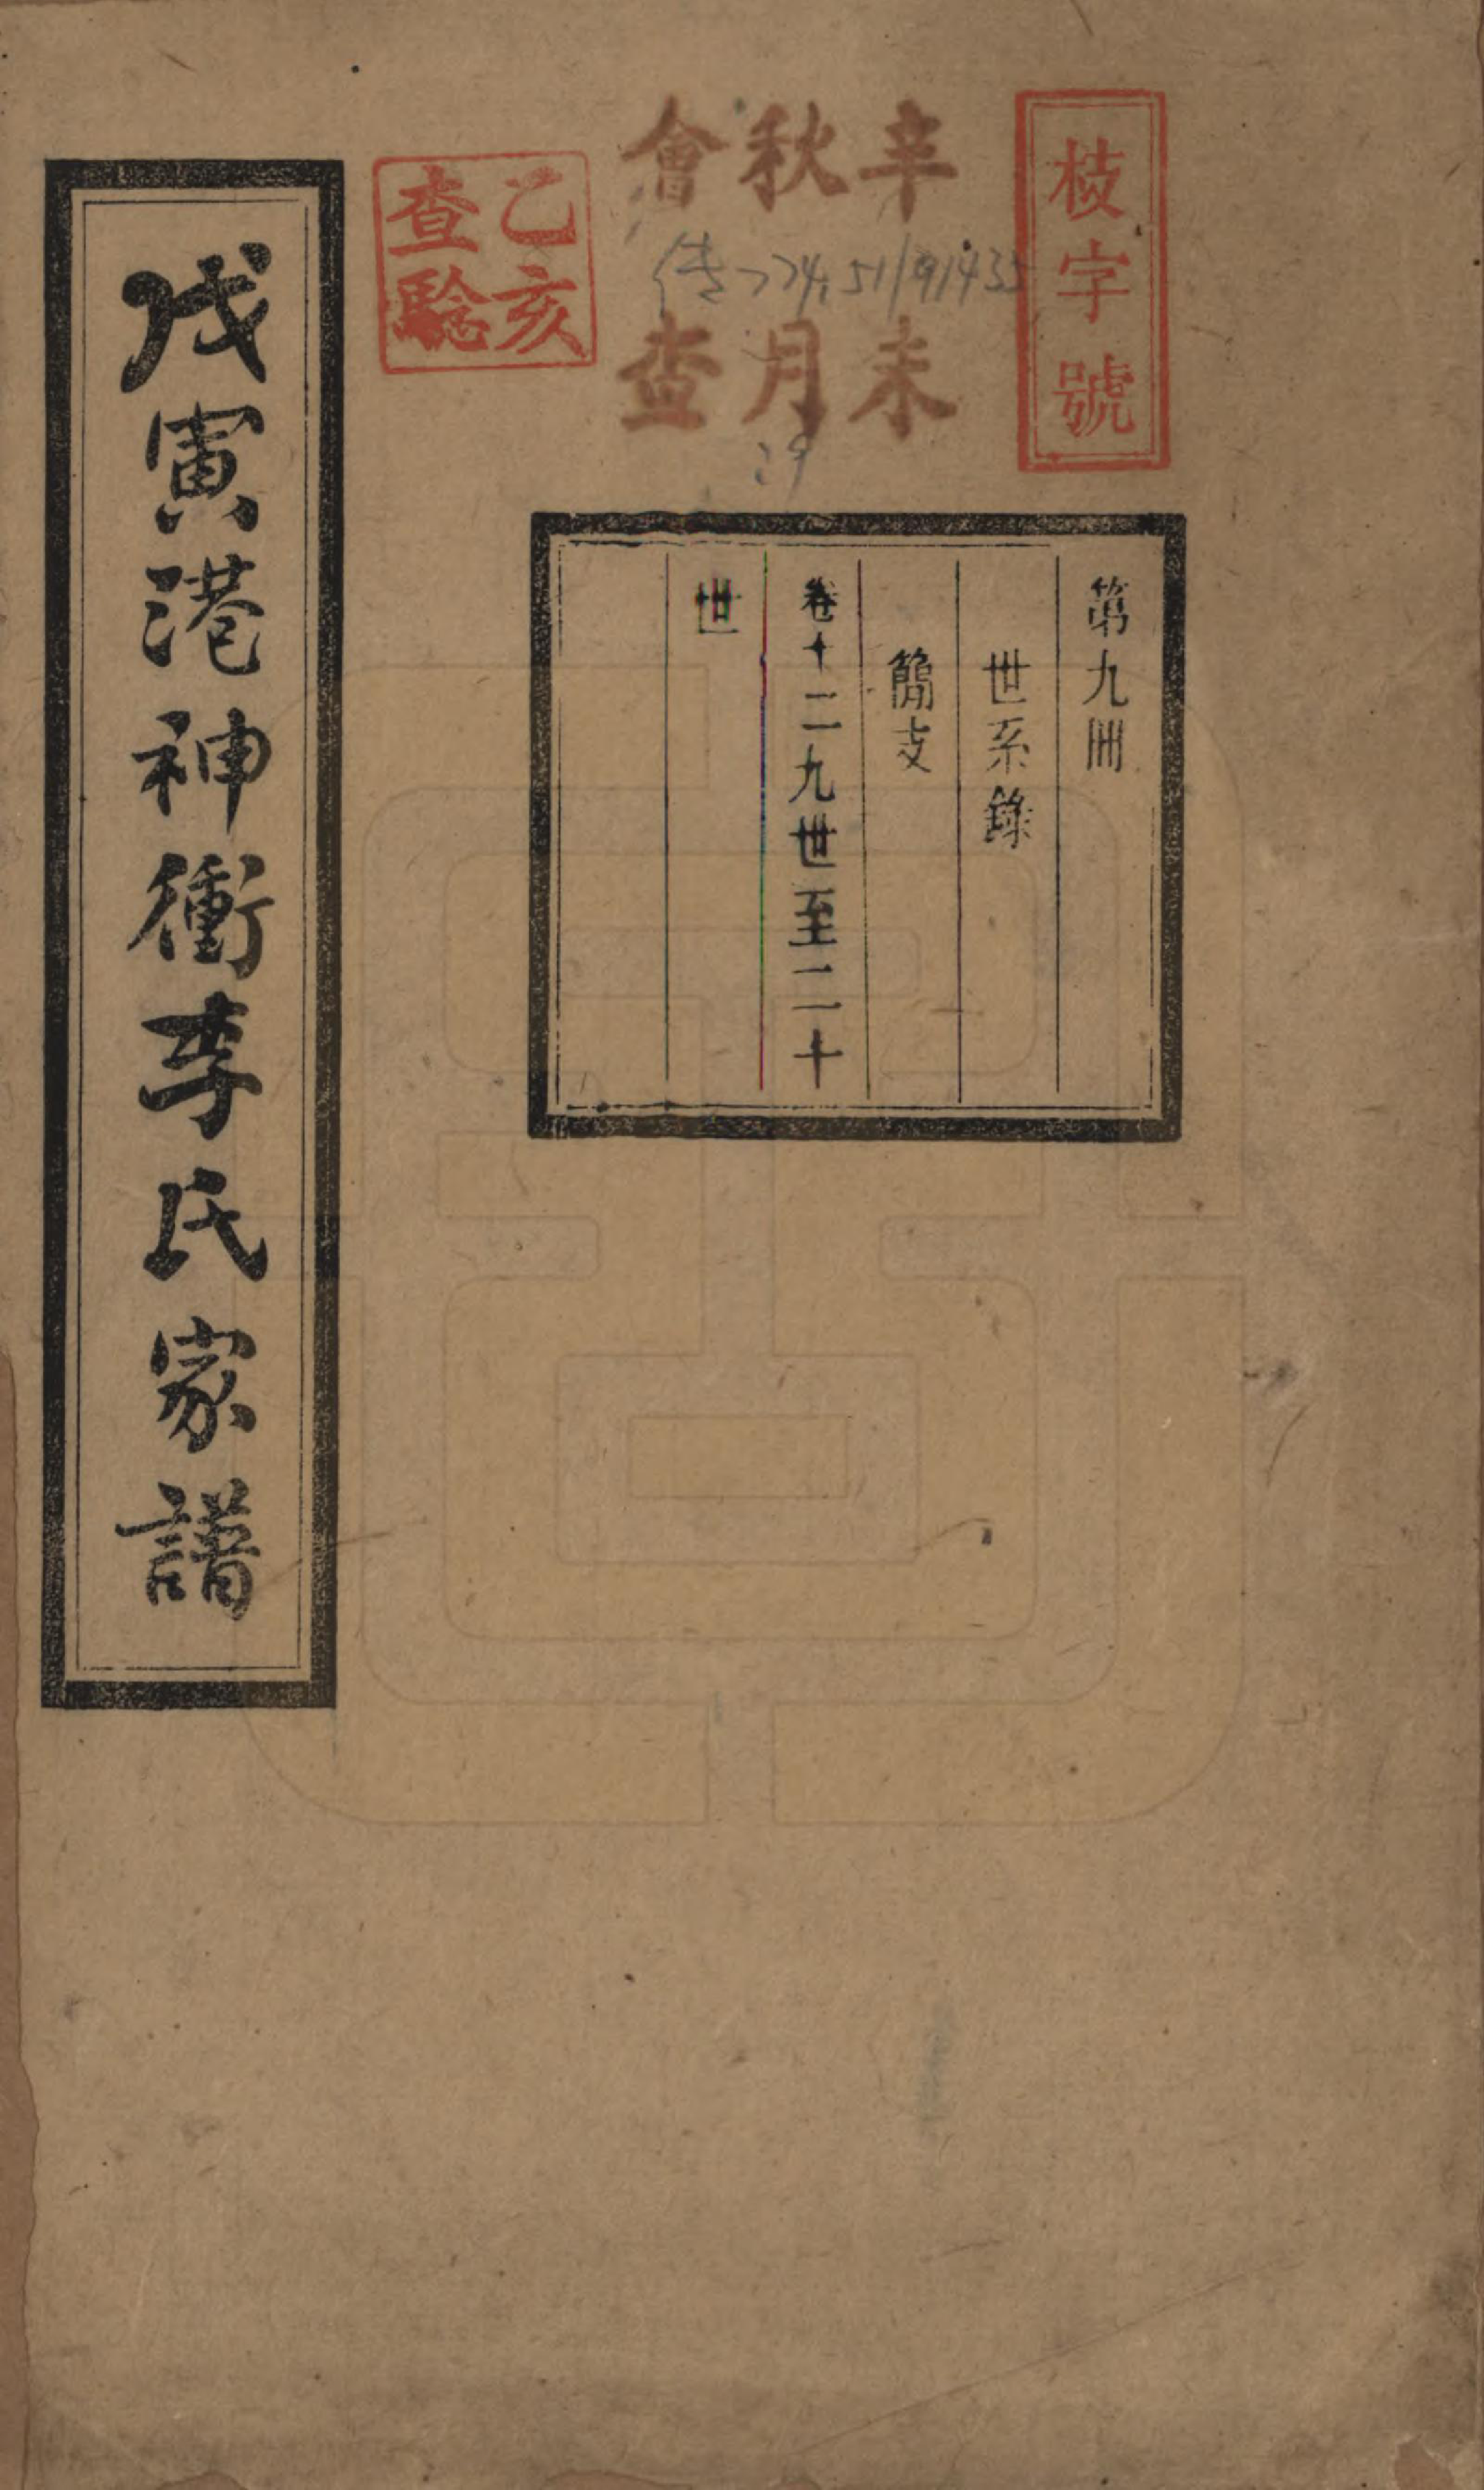 枝字號
辛未
秋月
會查
乙亥
查驗
29
第九冊
世系錄
簡支
卷十二九世至二十
世
戊寅港神衝李氏家譜